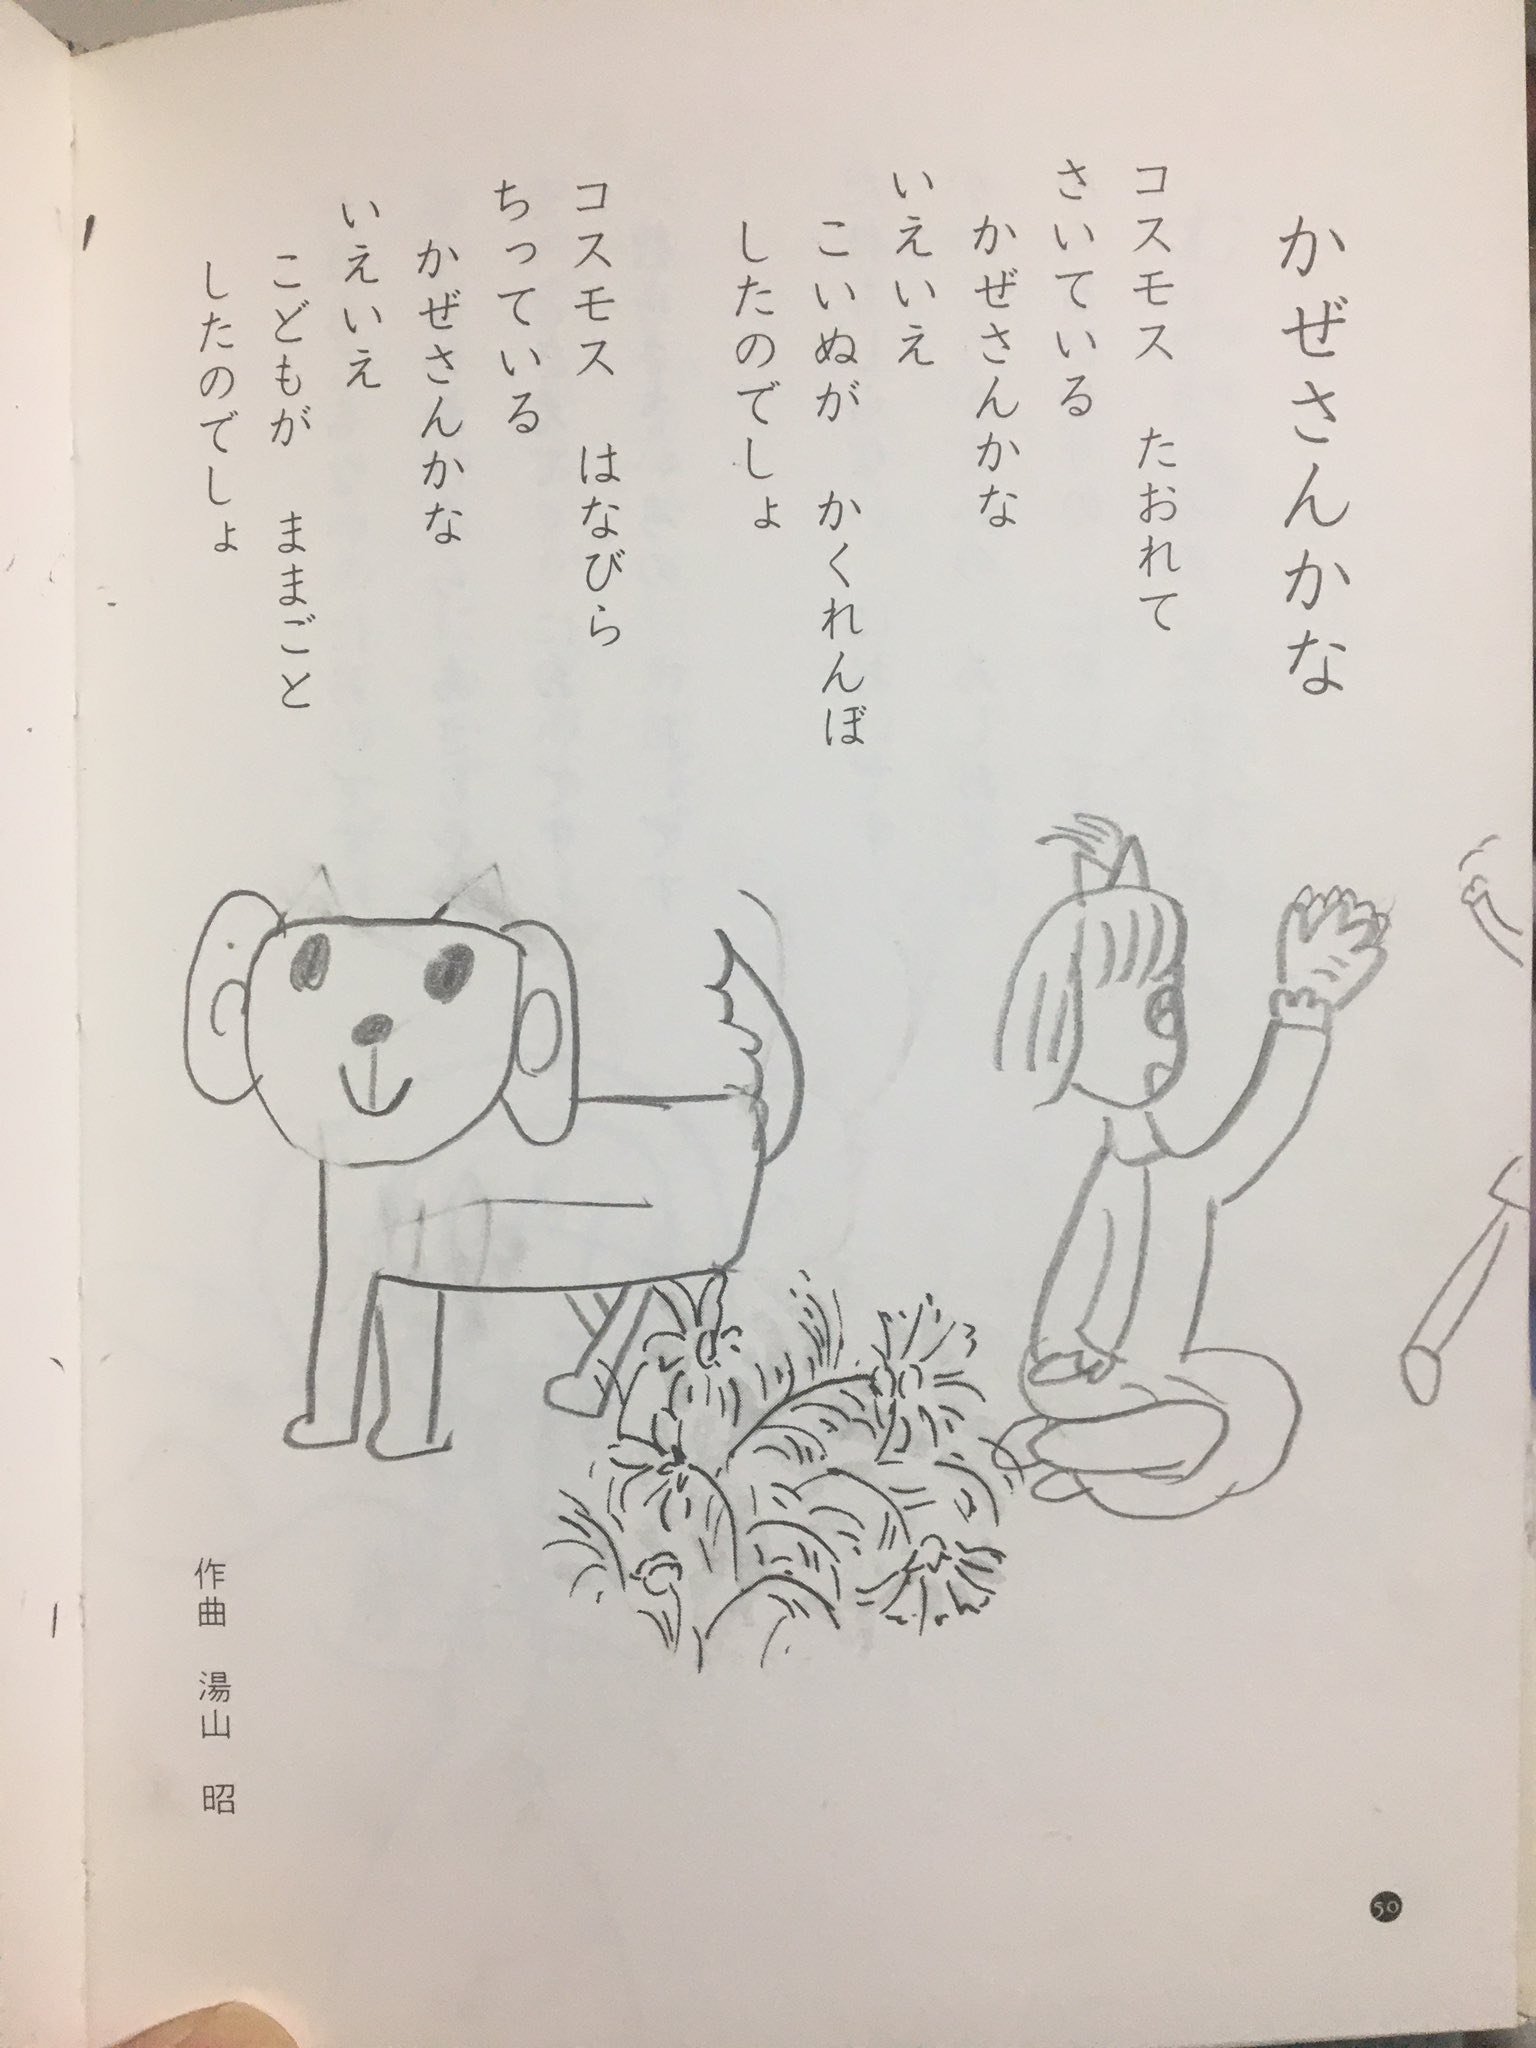 かぜさんかな
コスモス　たおれて
さいている
かぜさんかな
いえいえ
こいぬが　かくれんぼ
したのでしょ
コスモス　はなびら
ちっている
かぜさんかな
いえいえ
こどもが　ままごと
したのでしょ
作曲　湯山　昭
50